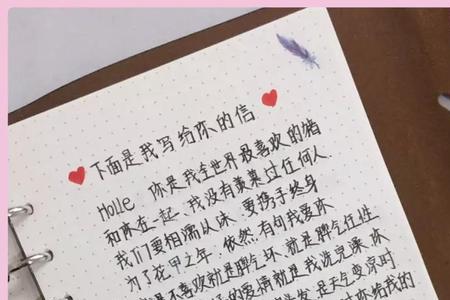 下面是我写给你的信
Holle 你是我全世界最喜欢的猪
和你在一起、我没有羡慕过任何人.
我们要相濡以沫 要携手终身
为了花甲之年 依然有句我爱你
是不喜欢就是脾气坏、就是脾气任性
的爱情就是我洗完澡、你
发是天气变凉时
你给我的